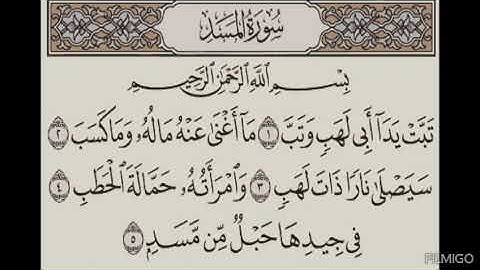 سُورَةُ المَسَدِ
بِسْمِ اللَّهِ الرَّحْمَٰنِ الرَّحِيمِ
تَبَّتْ يَدَآ أَبِى لَهَبٍ وَتَبَّ ١ مَآ أَغْنَىٰ عَنْهُ مَالُهُۥ وَمَا كَسَبَ ٢
سَيَصْلَىٰ نَارًا ذَاتَ لَهَبٍ ٣ وَٱمْرَأَتُهُۥ حَمَّالَةَ ٱلْحَطَبِ ٤
فِى جِيدِهَا حَبْلٌ مِّن مَّسَدٍۭ ٥
FILMIGO